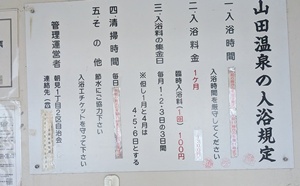 山田温泉の入浴規定
一、入浴時間
入浴時間を厳守してください
二、入浴料金
1ヶ月
臨時入浴料(1回)100円
三、入浴料の集金日
毎月1・2・3日の3日間
※但し1月と4月は
4・5・6日とする
四 清掃時間 毎日
五 その他 節水にご協力下さい
入浴エチケットを守って下さい
管理運営者 朝見1丁目2区自治会
連絡先(会